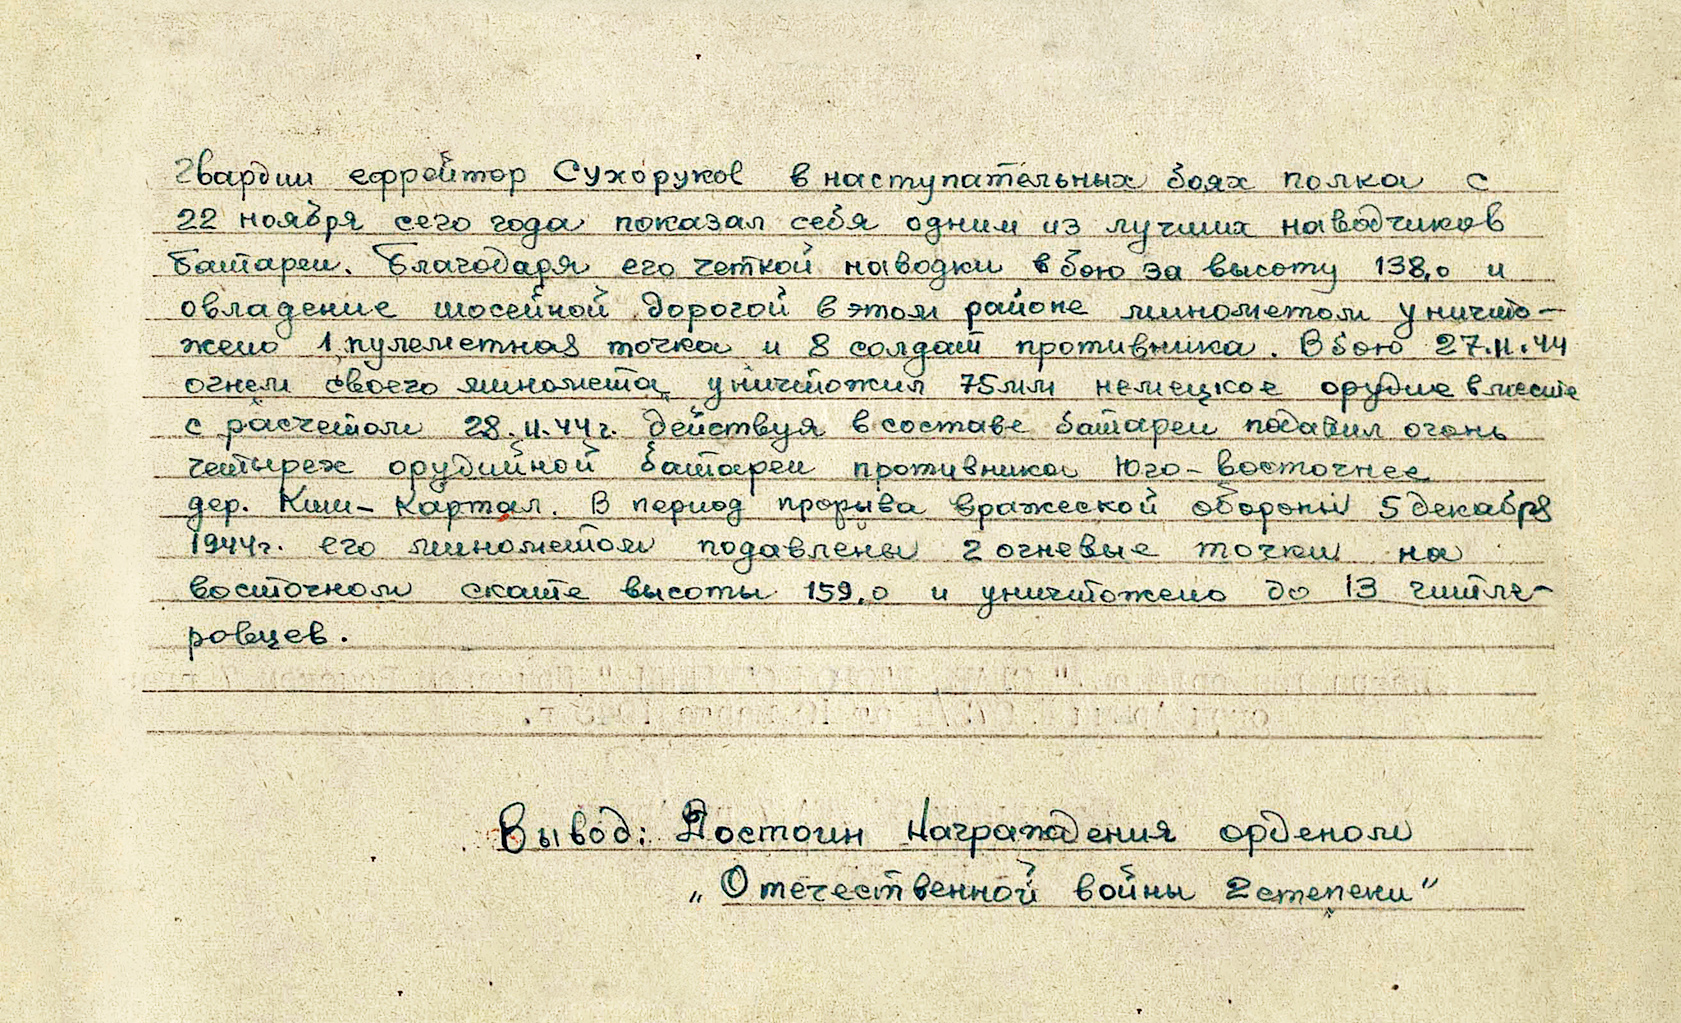 Гвардии ефрейтор Сухоруков в наступательных боях полка с
22 ноября сего года показал себя одним из лучших наводчиков
батареи. Благодаря его четкой наводки в бою за высоту 138,0 и
овладение шосейной дорогой в этом районе минометом уничто-
жено 1 пулеметная точка и 8 солдат противника. В бою 27.11.44
огнем своего миномета, уничтожил 75мм немецкое орудие вместе
с расчетом 28.11.44г. действуя в составе батареи подавил огонь
четырех орудийной батареи противника Юго-восточнее
дер. Киш-Картал. В период прорыва вражеской обороны 5 декабря
1944г. его минометом подавлены 2 огневые точки на
восточном скате высоты 159,0 и уничтожено до 13 гитле-
ровцев.
Вывод: Достоин Награждения орденом
„Отечественной войны 2 степени"